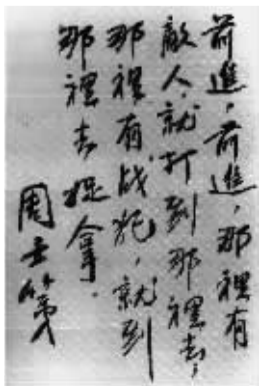 前進，前進，那裡有
敵人，就打到那裡去，
那裡有战犯，就到
那裡去捉拿．
周士第